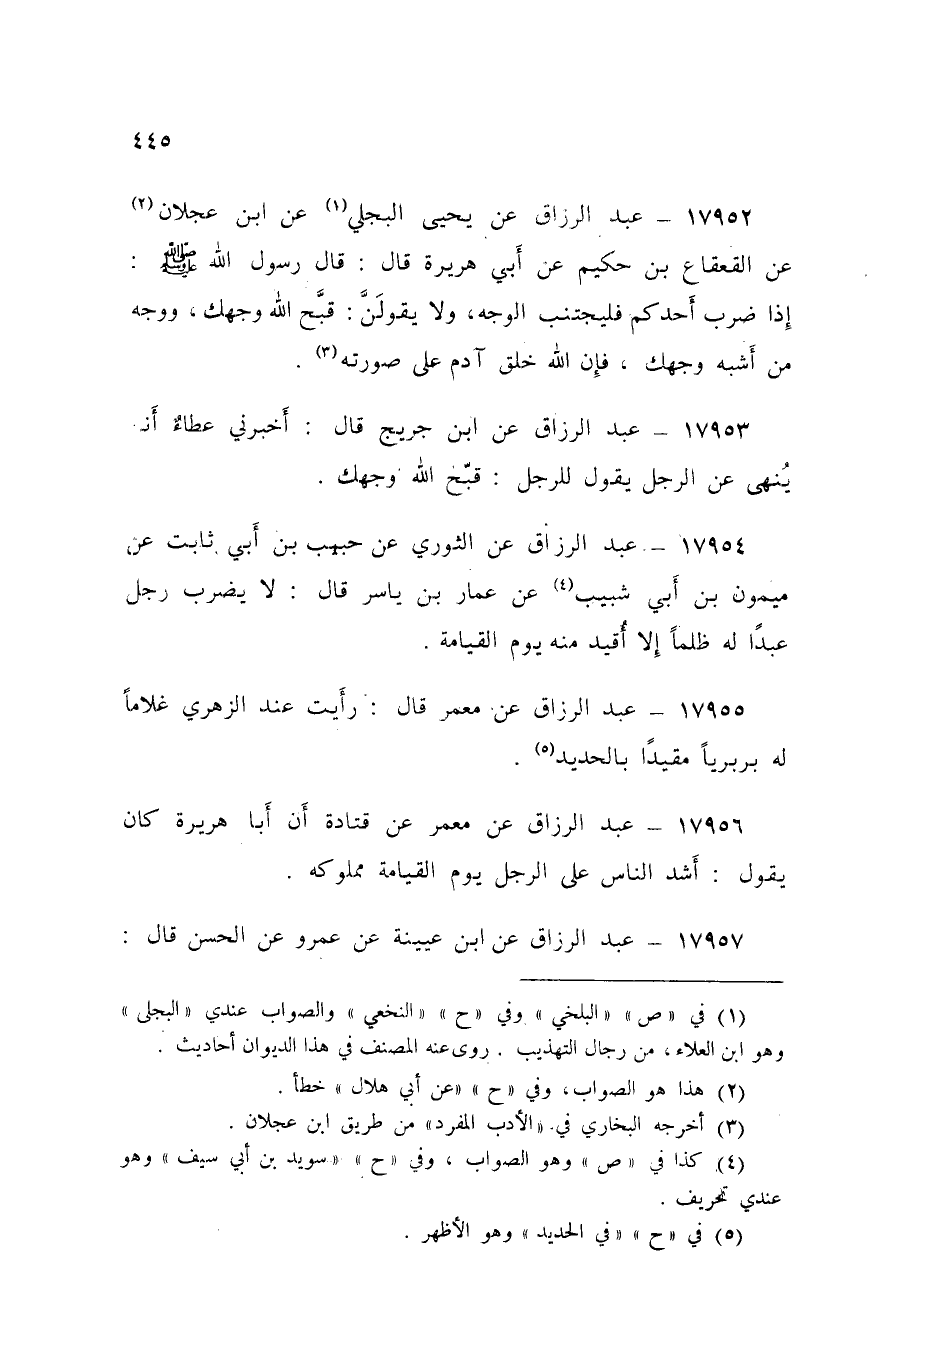 ٤٤٥
١٧٩٥٢ – عبد الرزاق عن يحيى البجلي(١) عن ابن عجلان(٢)
عن القعقاع بن حكيم عن أبي هريرة قال : قال رسول الله ﷺ :
إذا ضرب أحدكم فليجتنب الوجه، ولا يقولَنَّ : قبَّح الله وجهك ، ووجه
من أشبه وجهك ، فإن الله خلق آدم على صورته(٣) .
١٧٩٥٣ – عبد الرزاق عن ابن جريج قال : أخبرني عطاءٌ أنه
يُنهى عن الرجل يقول للرجل : قبّح الله وجهك .
١٧٩٥٤ – عبد الرزاق عن الثوري عن حبيب بن أبي ثابت عن
ميمون بن أبي شبيب(٤) عن عمار بن ياسر قال : لا يضرب رجل
عبدًا له ظلماً إلا أُقيد منه يوم القيامة .
١٧٩٥٥ – عبد الرزاق عن معمر قال : رأيت عند الزهري غلاماً
له بربرياً مقيدًا بالحديد(٥) .
١٧٩٥٦ – عبد الرزاق عن معمر عن قتادة أن أبا هريرة كان
يقول : أشد الناس على الرجل يوم القيامة مملوكه .
١٧٩٥٧ – عبد الرزاق عن ابن عيينة عن عمرو عن الحسن قال :
(١) في « ص » « البلخي » وفي « ح » « النخعي » والصواب عندي « البجلى »
وهو ابن العلاء ، من رجال التهذيب . روى عنه المصنف في هذا الديوان أحاديث .
(٢) هذا هو الصواب، وفي « ح » « عن أبي هلال » خطأ .
(٣) أخرجه البخاري في « الأدب المفرد » من طريق ابن عجلان .
(٤) كذا في « ص » وهو الصواب ، وفي « ح » « سويد بن أبي سيف » وهو
عندي تحريف .
(٥) في « ح » « في الحديد » وهو الأظهر .